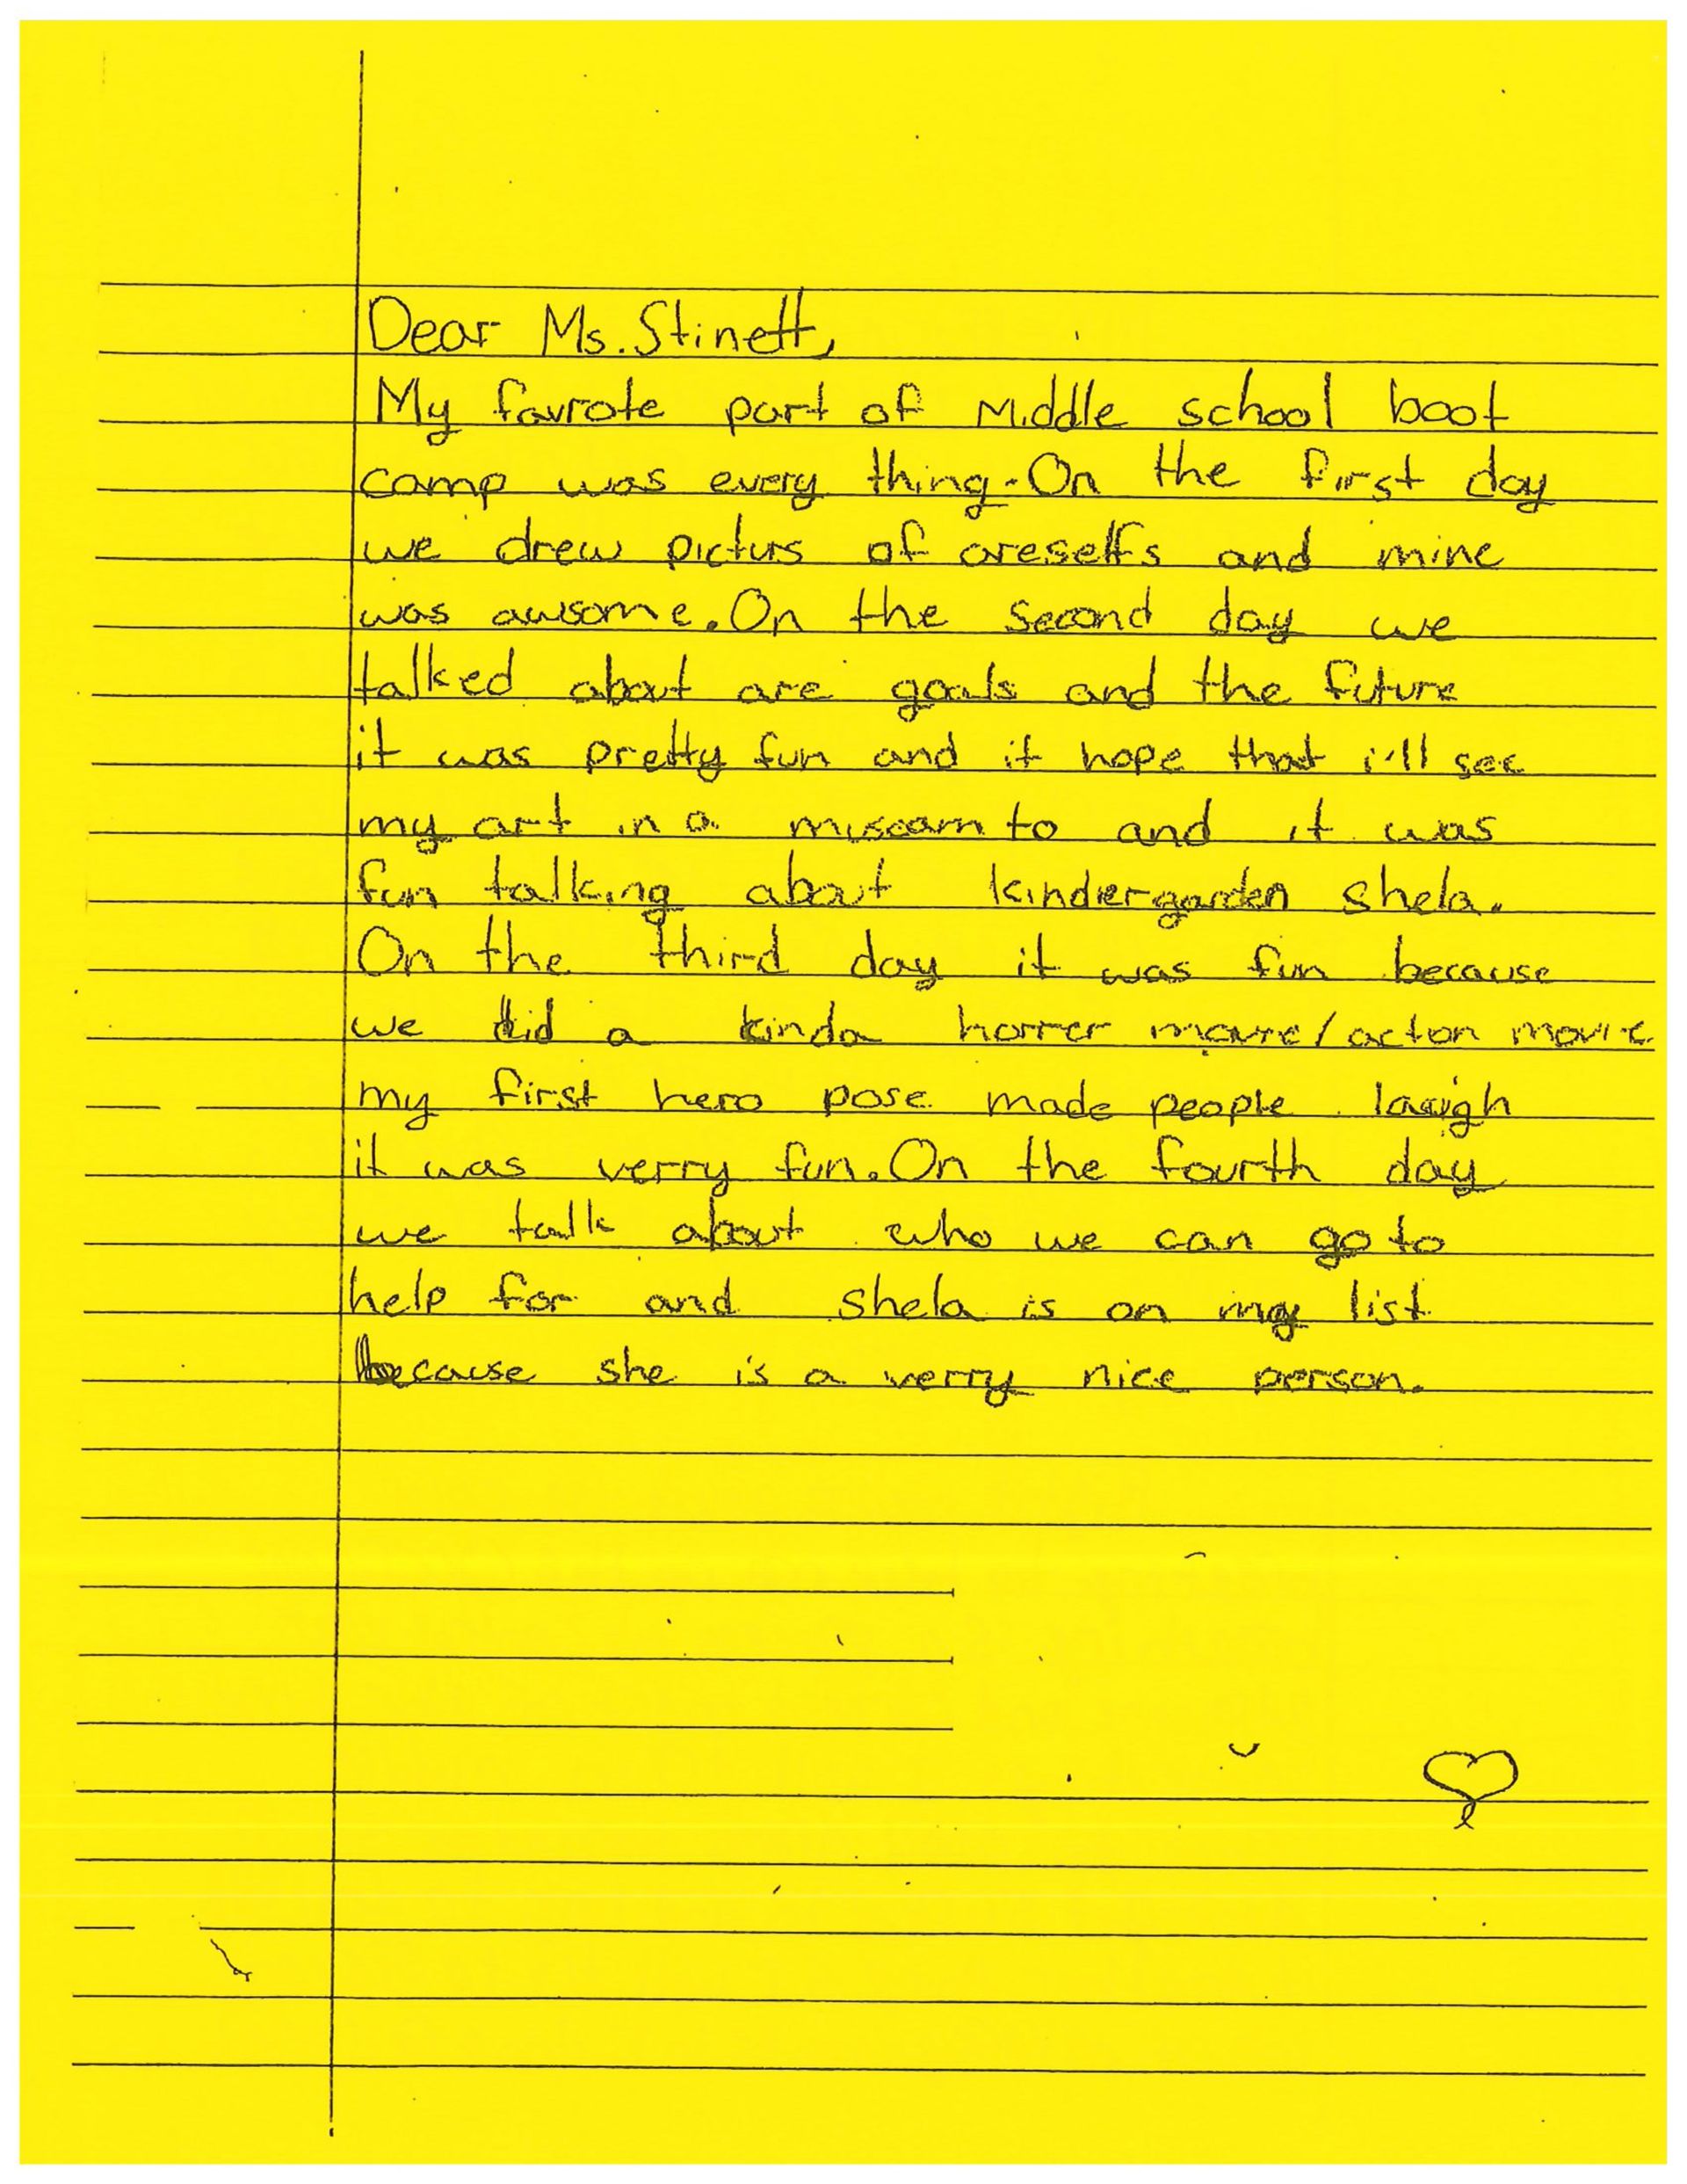 Dear Ms. Stinett,
My favrote part of Middle school boot
camp was every thing. On the first day
we drew picturs of oreselfs and mine
was awsome. On the second day we
talked about are goals and the future
it was pretty fun and it hope that i'll see
my art in a miscam to and it was
fun talking about kindergarden shela.
On the third day it was fun because
we did a kinda horrer movie/acton movie
my first hero pose made people laugh
it was verry fun. On the fourth day
we talk about who we can go to
help for and shela is on my list
because she is a verry nice person.